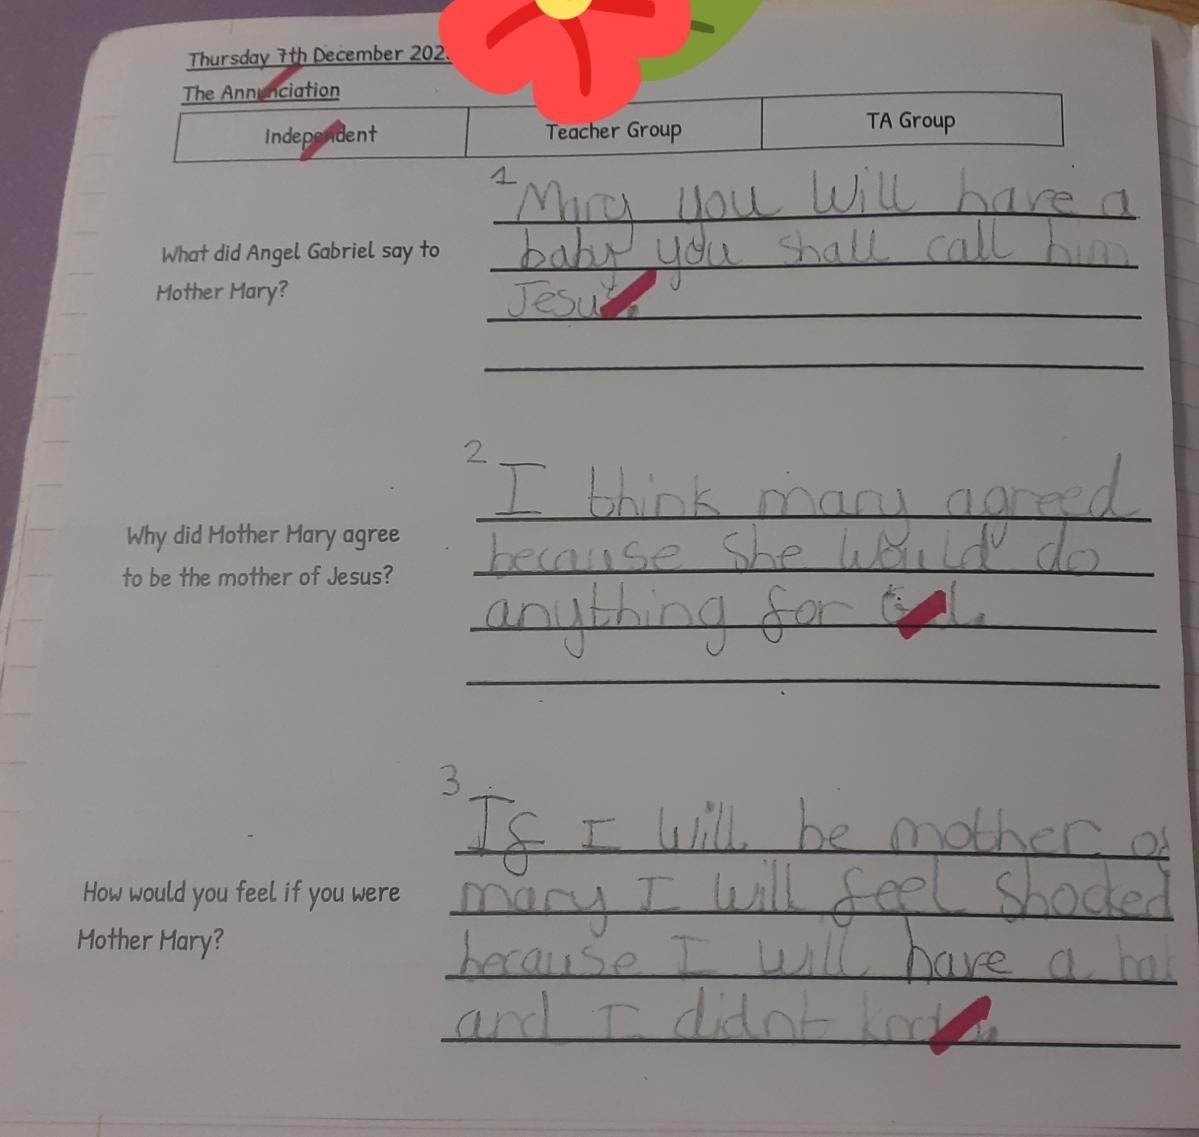 Thursday 7th December 202
The Annunciation
Independent Teacher Group TA Group
1 Mary you Will have a
What did Angel Gabriel say to
Mother Mary?
baby you shall call him
Jesus.
2 I think mary agreed
Why did Mother Mary agree
to be the mother of Jesus?
because She Would do
anything for God.
3 If I Will be mother of
How would you feel if you were
Mother Mary?
mary I will feel Shocked
because I will have a
and I didnt know.